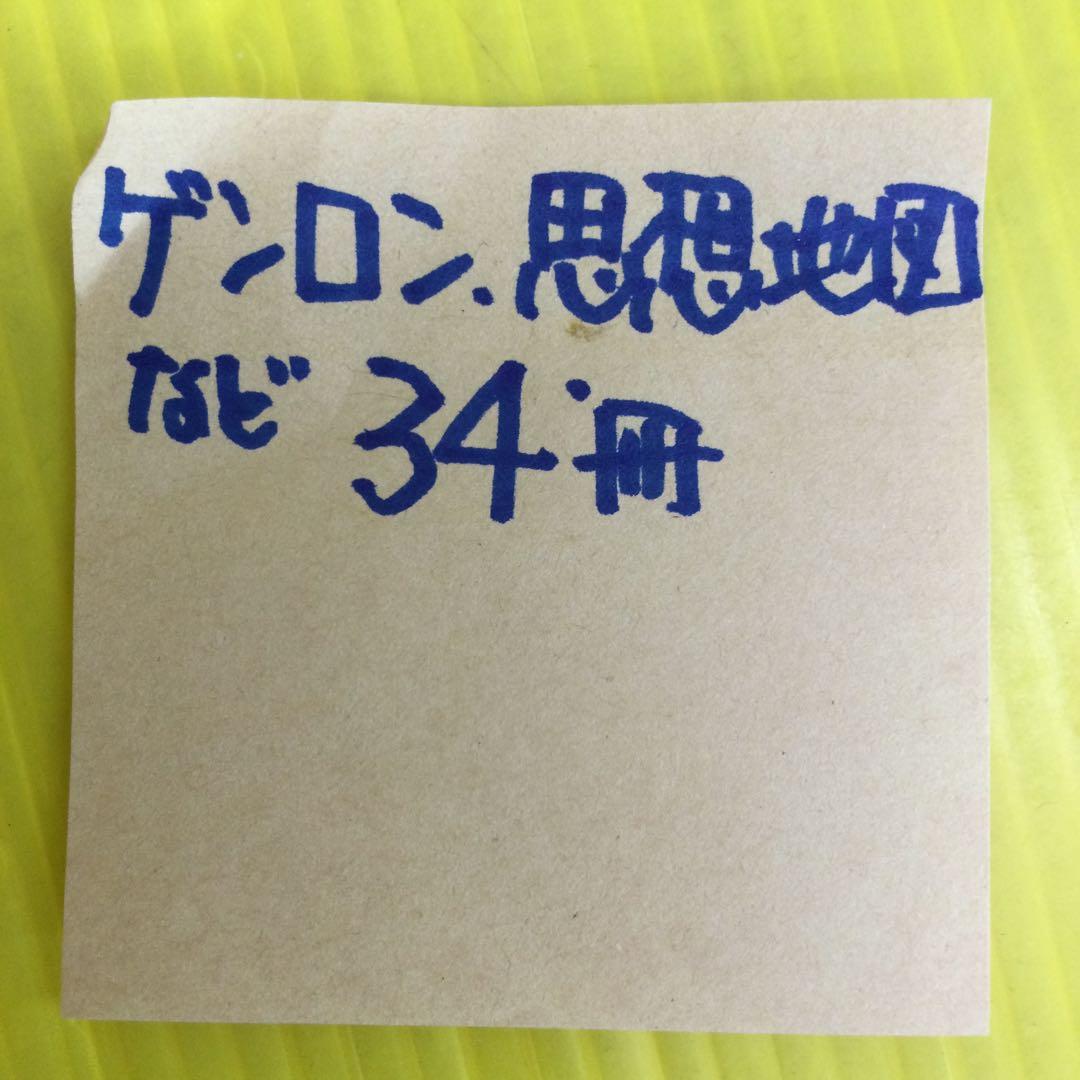 ゲンロン.思想地図
など 34冊